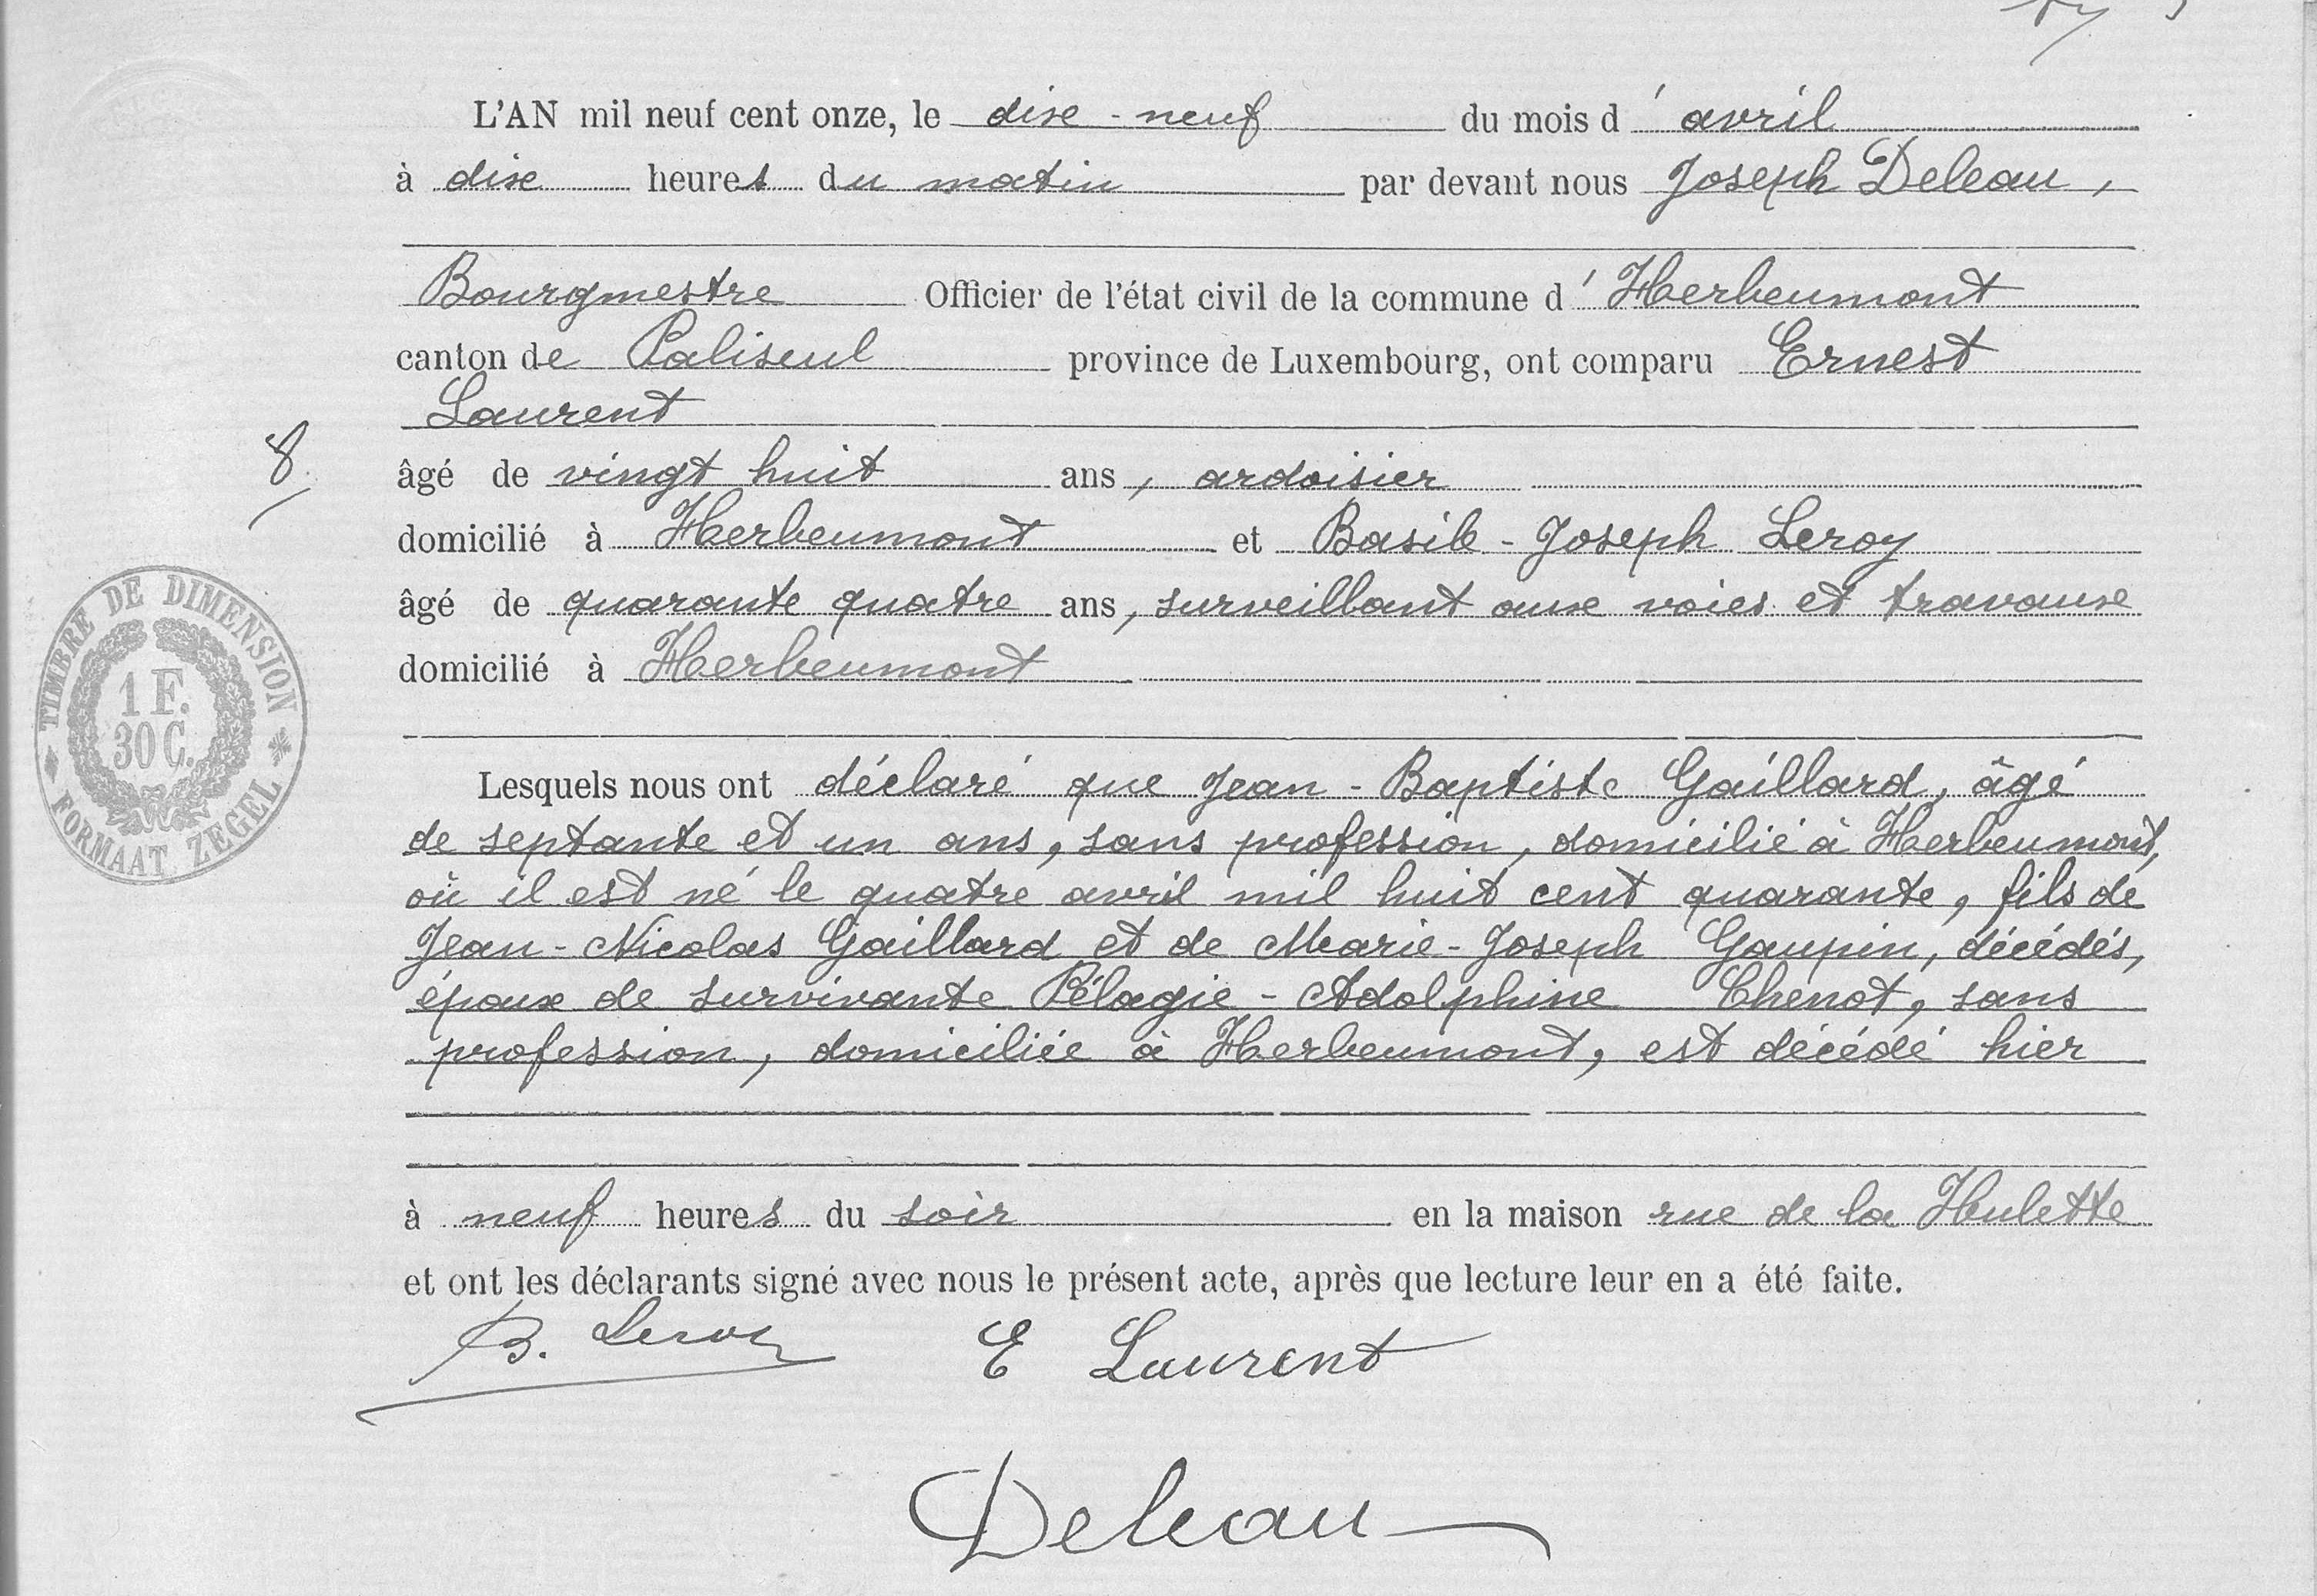 L'AN mil neuf cent onze, le dix-neuf du mois d'avril
à dix heures du matin par devant nous Joseph Deleau,
Bourgmestre Officier de l'état civil de la commune d'Herbeumont
canton de Paliseul province de Luxembourg, ont comparu Ernest
Laurent
8
âgé de vingt huit ans, ardoisier
domicilié à Herbeumont et Basile-Joseph Leroy
âgé de quarante quatre ans, surveillant aux voies et travaux
domicilié à Herbeumont
TIMBRE DE DIMENSION
1 F.
30 C.
FORMAAT ZEGEL
Lesquels nous ont déclaré que Jean-Baptiste Gaillard, âgé
de septante et un ans, sans profession, domicilié à Herbeumont,
où il est né le quatre avril mil huit cent quarante, fils de
Jean-Nicolas Gaillard et de Marie-Joseph Gaupin, décédés,
époux de survivante Pélagie-Adolphine Chenot, sans
profession, domiciliée à Herbeumont, est décédé hier
à neuf heures du soir en la maison rue de la Hulette
et ont les déclarants signé avec nous le présent acte, après que lecture leur en a été faite.
B. Leroy E Laurent
Deleau